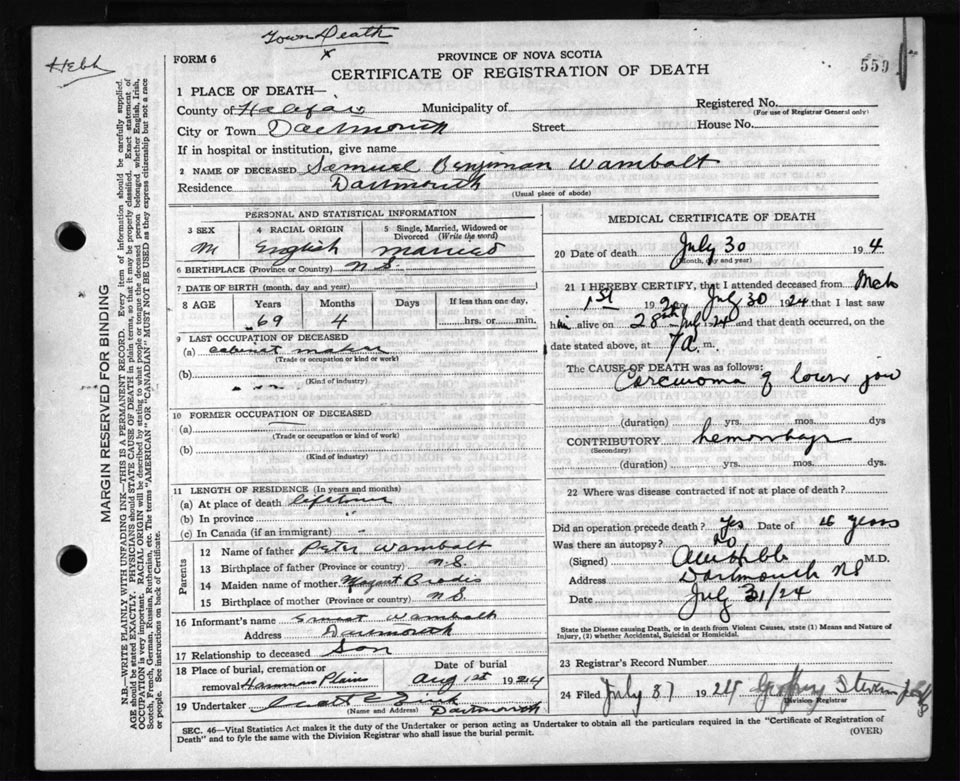 Town Death
x
Hebb
FORM 6
PROVINCE OF NOVA SCOTIA
559
CERTIFICATE OF REGISTRATION OF DEATH
1 PLACE OF DEATH—
County of Halifax Municipality of Registered No.
(For use of Registrar General only)
City or Town Dartmouth Street House No.
If in hospital or institution, give name
2 NAME OF DECEASED Samuel Benjiman Wambolt
Residence Dartmouth
(Usual place of abode)
PERSONAL AND STATISTICAL INFORMATION
3 SEX 4 RACIAL ORIGIN 5 Single, Married, Widowed or Divorced (Write the word)
M English Married
6 BIRTHPLACE (Province or Country) N.S.
7 DATE OF BIRTH (month, day and year)
8 AGE Years Months Days If less than one day,
69 4 hrs. or min.
9 LAST OCCUPATION OF DECEASED
(a) cabinet maker
(Trade or occupation or kind or work)
(b)
(Kind of industry)
10 FORMER OCCUPATION OF DECEASED
(a)
(Trade or occupation or kind of work)
(b)
(Kind of industry)
11 LENGTH OF RESIDENCE (In years and months)
(a) At place of death lifetime
(b) In province "
(c) In Canada (if an immigrant)
Parents
12 Name of father Peter Wambolt
13 Birthplace of father (Province or country) N.S.
14 Maiden name of mother Brodie
15 Birthplace of mother (Province or country) N.S.
16 Informant's name Ernest Wambolt
Address Dartmouth
17 Relationship to deceased Son
18 Place of burial, cremation or removal Hammonds Plains Date of burial Aug 1st 1924
19 Undertaker
(Name and Address) Dartmouth
MEDICAL CERTIFICATE OF DEATH
20 Date of death July 30 1924
(Month, day and year)
21 I HEREBY CERTIFY, that I attended deceased from Mch
1st 192 to July 30 1924 that I last saw
him alive on 28th July 1924 and that death occurred, on the
date stated above, at 7 a. m.
The CAUSE OF DEATH was as follows:
Carcinoma of lower jaw
(duration) yrs. mos. dys
CONTRIBUTORY hemorrhage
(Secondary)
(duration) yrs. mos. dys.
22 Where was disease contracted if not at place of death?
Did an operation precede death? Yes Date of 16 years
Was there an autopsy? No
(Signed) M.D.
Address Dartmouth NS
Date July 31/24
State the Disease causing Death, or in death from Violent Causes, state (1) Means and Nature of
Injury, (2) whether Accidental, Suicidal or Homicidal.
23 Registrar's Record Number
24 Filed July 31 1924 Geoffrey Stevens
Division Registrar
SEC. 46—Vital Statistics Act makes it the duty of the Undertaker or person acting as Undertaker to obtain all the particulars required in the "Certificate of Registration of
Death" and to fyle the same with the Division Registrar who shall issue the burial permit. (OVER)
MARGIN RESERVED FOR BINDING
N.B.—WRITE PLAINLY WITH UNFADING INK—THIS IS A PERMANENT RECORD. Every item of information should be carefully supplied.
AGE should be stated EXACTLY. PHYSICIANS should STATE CAUSE OF DEATH in plain terms, so that it may be properly classified. Exact statement of
OCCUPATION is very important. RACIAL ORIGIN will be described by stating to what people or tongue the deceased person belonged whether English, Irish,
Scotch, French, German, Russian, Ruthenian, etc. The terms "AMERICAN" OR "CANADIAN" MUST NOT BE USED as they express citizenship but not a race
or people. See instructions on back of Certificate.